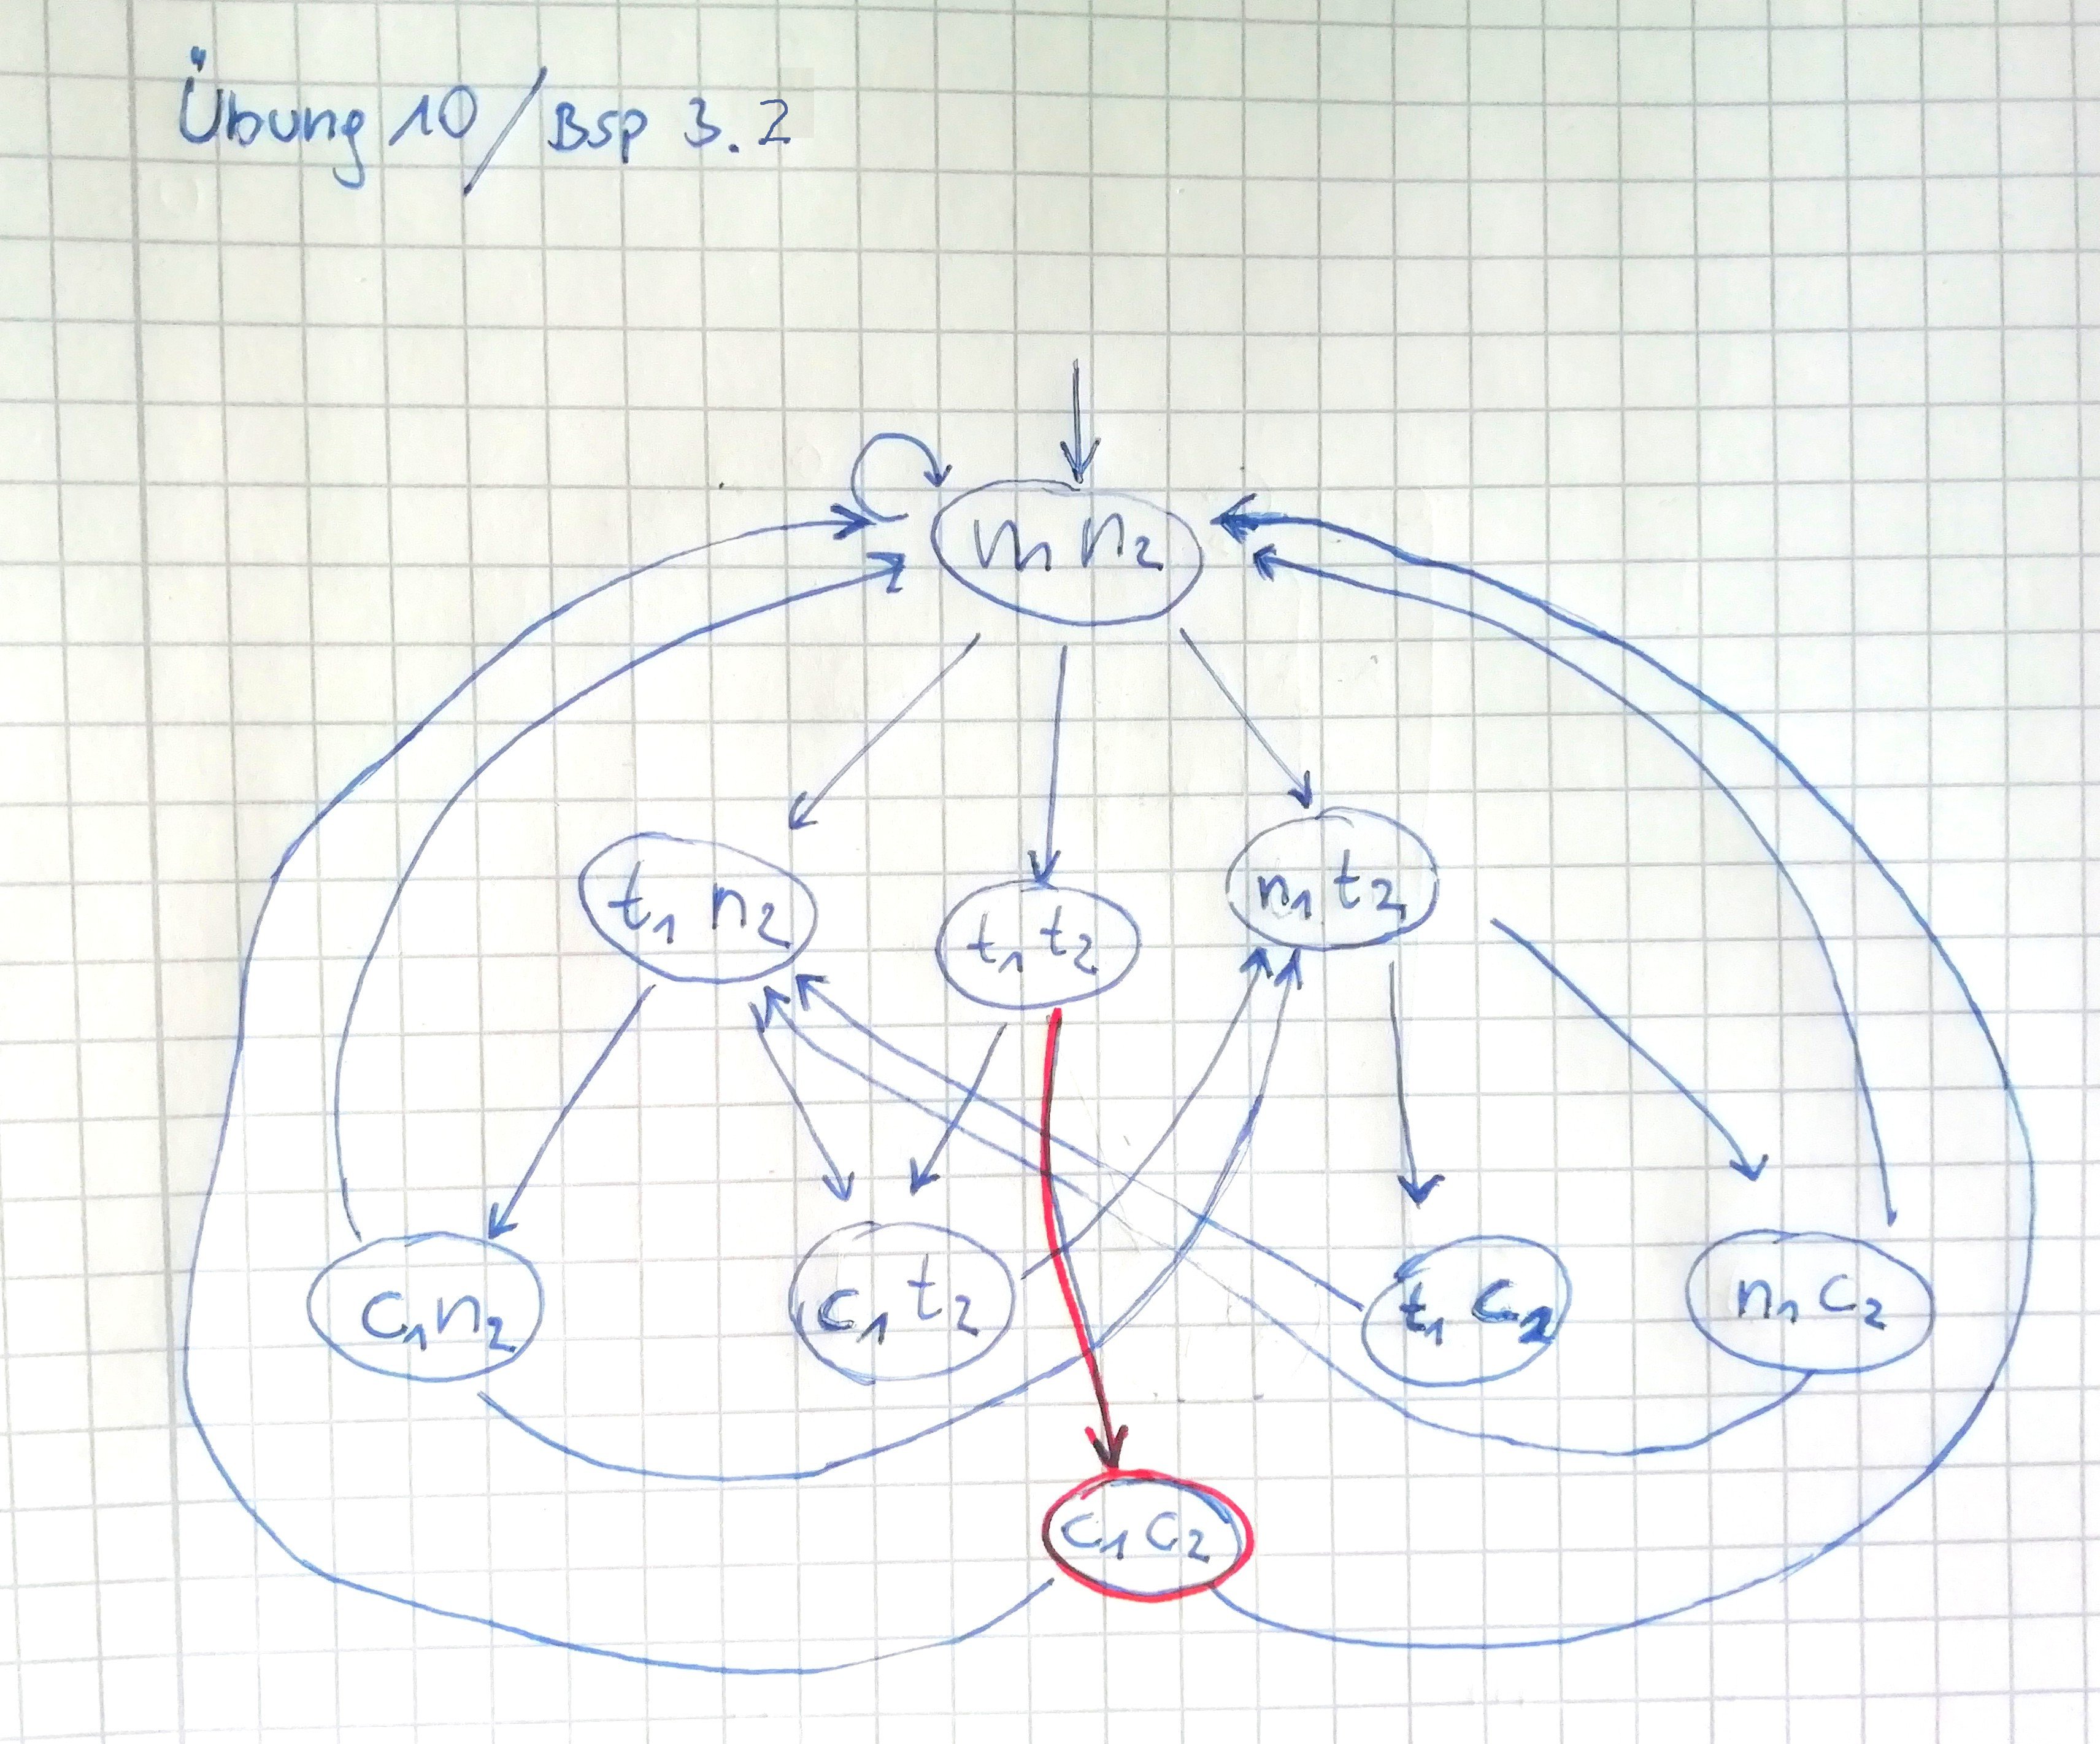 Übung 10/Bsp 3.2
n1 n2
t1 n2
t1 t2
n1 t2
c1 n2
c1 t2
t1 c2
n1 c2
c1 c2